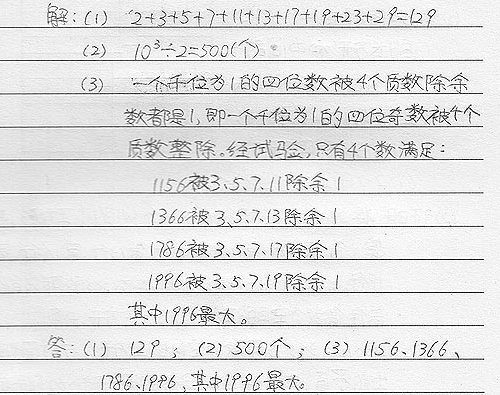 解:(1) 2+3+5+7+11+13+17+19+23+29=129
(2) 10³÷2=500(个)
(3) 一个千位为1的四位数被4个质数除余
数都是1,即一个千位为1的四位奇数被4个
质数整除。经试验,只有4个数满足:
1156被3、5、7、11除余1
1366被3、5、7、13除余1
1786被3、5、7、17除余1
1996被3、5、7、19除余1
其中1996最大。
答:(1) 129;(2) 500个;(3) 1156、1366、
1786、1996,其中1996最大。